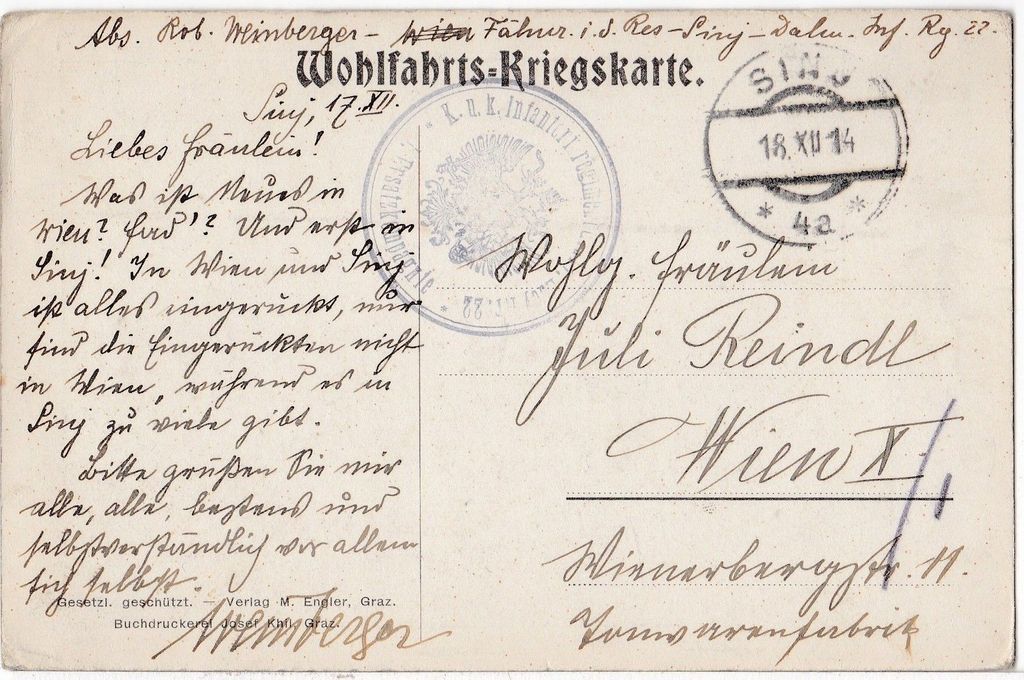 Abs. Rob. Weinberger - Wien Fähnr. i. d. Res - Sinj - Dalm. Inf. Rg. 22.
Wohlfahrts-Kriegskarte.
Sinj, 17. XII.
Liebes Fräulein!
Was ist Neues in
Wien? Fad'? Und erst in
Sinj! In Wien und Sinj
ist alles eingerückt, nur
sind die Eingerückten nicht
in Wien, während es in
Sinj zu viele gibt.
Bitte grüßen Sie mir
alle, alle, bestens und
selbstverständlich vor allem
sich selbst.
Weinberger
Gesetzl. geschützt. — Verlag M. Engler, Graz.
Buchdruckerei Josef Khil, Graz.
K. u. k. Infanterieregiment
22
SINJ
18. XII 14
* 4a *
Wohlg. Fräulein
Juli Reindl
Wien X/1
Wienerbergstr. 11.
Tonwarenfabrik